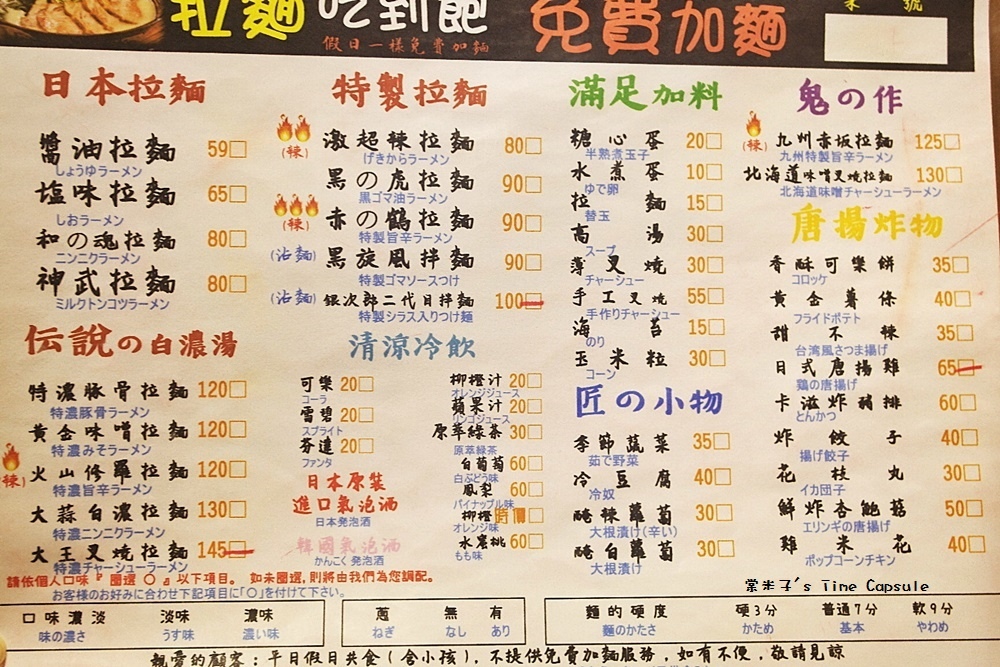 拉麵吃到飽
假日一樣免費加麵
免費加麵
號
日本拉麵
醬油拉麵 59
しょうゆラーメン
塩味拉麵 65
しおラーメン
和の魂拉麵 80
ニンニクラーメン
神武拉麵 80
ミルクトンコツラーメン
伝説の白濃湯
特濃豚骨拉麵 120
特濃豚骨ラーメン
黄金味噌拉麵 120
特濃みそラーメン
(辣) 火山修羅拉麵 120
特濃旨辛ラーメン
大蒜白濃拉麵 130
特濃ニンニクラーメン
大王叉燒拉麵 145
特濃チャーシューラーメン
特製拉麵
(辣) 激超辣拉麵 80
げきからラーメン
黒の虎拉麵 90
黒ゴマ油ラーメン
(辣) 赤の鶴拉麵 90
特製旨辛ラーメン
(沾麵) 黒旋風拌麵 90
特製ゴマソースつけ
(沾麵) 銀次郎二代目拌麵 100
特製シラス入りつけ麺
清涼冷飲
可樂 20
コーラ
雪碧 20
スプライト
芬達 20
ファンタ
日本原裝
進口氣泡酒
日本発泡酒
韓國氣泡酒
かんこく発泡酒
柳橙汁 20
オレンジジュース
蘋果汁 20
リンゴジュース
原萃綠茶 30
原萃緑茶
白葡萄 60
白ぶどう味
鳳梨 60
パイナップル味
柳橙 時價
オレンジ味
水蜜桃 60
もも味
滿足加料
糖心蛋 20
半熟煮玉子
水煮蛋 10
ゆで卵
拉麵 15
替玉
高湯 30
スープ
薄叉燒 30
チャーシュー
手工叉燒 55
手作りチャーシュー
海苔 15
のり
玉米粒 30
コーン
匠の小物
季節蔬菜 35
茹で野菜
冷豆腐 40
冷奴
醃辣蘿蔔 30
大根漬け(辛い)
醃白蘿蔔 30
大根漬け
鬼の作
(辣) 九州赤坂拉麵 125
九州特製旨辛ラーメン
北海道味噌叉燒拉麵 130
北海道味噌チャーシューラーメン
唐揚炸物
香酥可樂餅 35
コロッケ
黃金薯條 40
フライドポテト
甜不辣 35
台湾風さつま揚げ
日式唐揚雞 65
鶏の唐揚げ
卡滋炸豬排 60
とんかつ
炸餃子 40
揚げ餃子
花枝丸 30
イカ団子
鮮炸杏鮑菇 50
エリンギの唐揚げ
雞米花 40
ポップコーンチキン
蒙米子's Time Capsule
請依個人口味『圈選 〇』以下項目。 如未圈選,則將由我們為您調配。
お客様のお好みに合わせ下記項目に「〇」を付けて下さい。
口味濃淡 淡味 濃味
味の濃さ うす味 濃い味
蔥 無 有
ねぎ なし あり
麵的硬度 硬3分 普通7分 軟9分
麵のかたさ かため 基本 やわめ
親愛的顧客：平日假日共食(含小孩)，不提供免費加麵服務，如有不便，敬請見諒